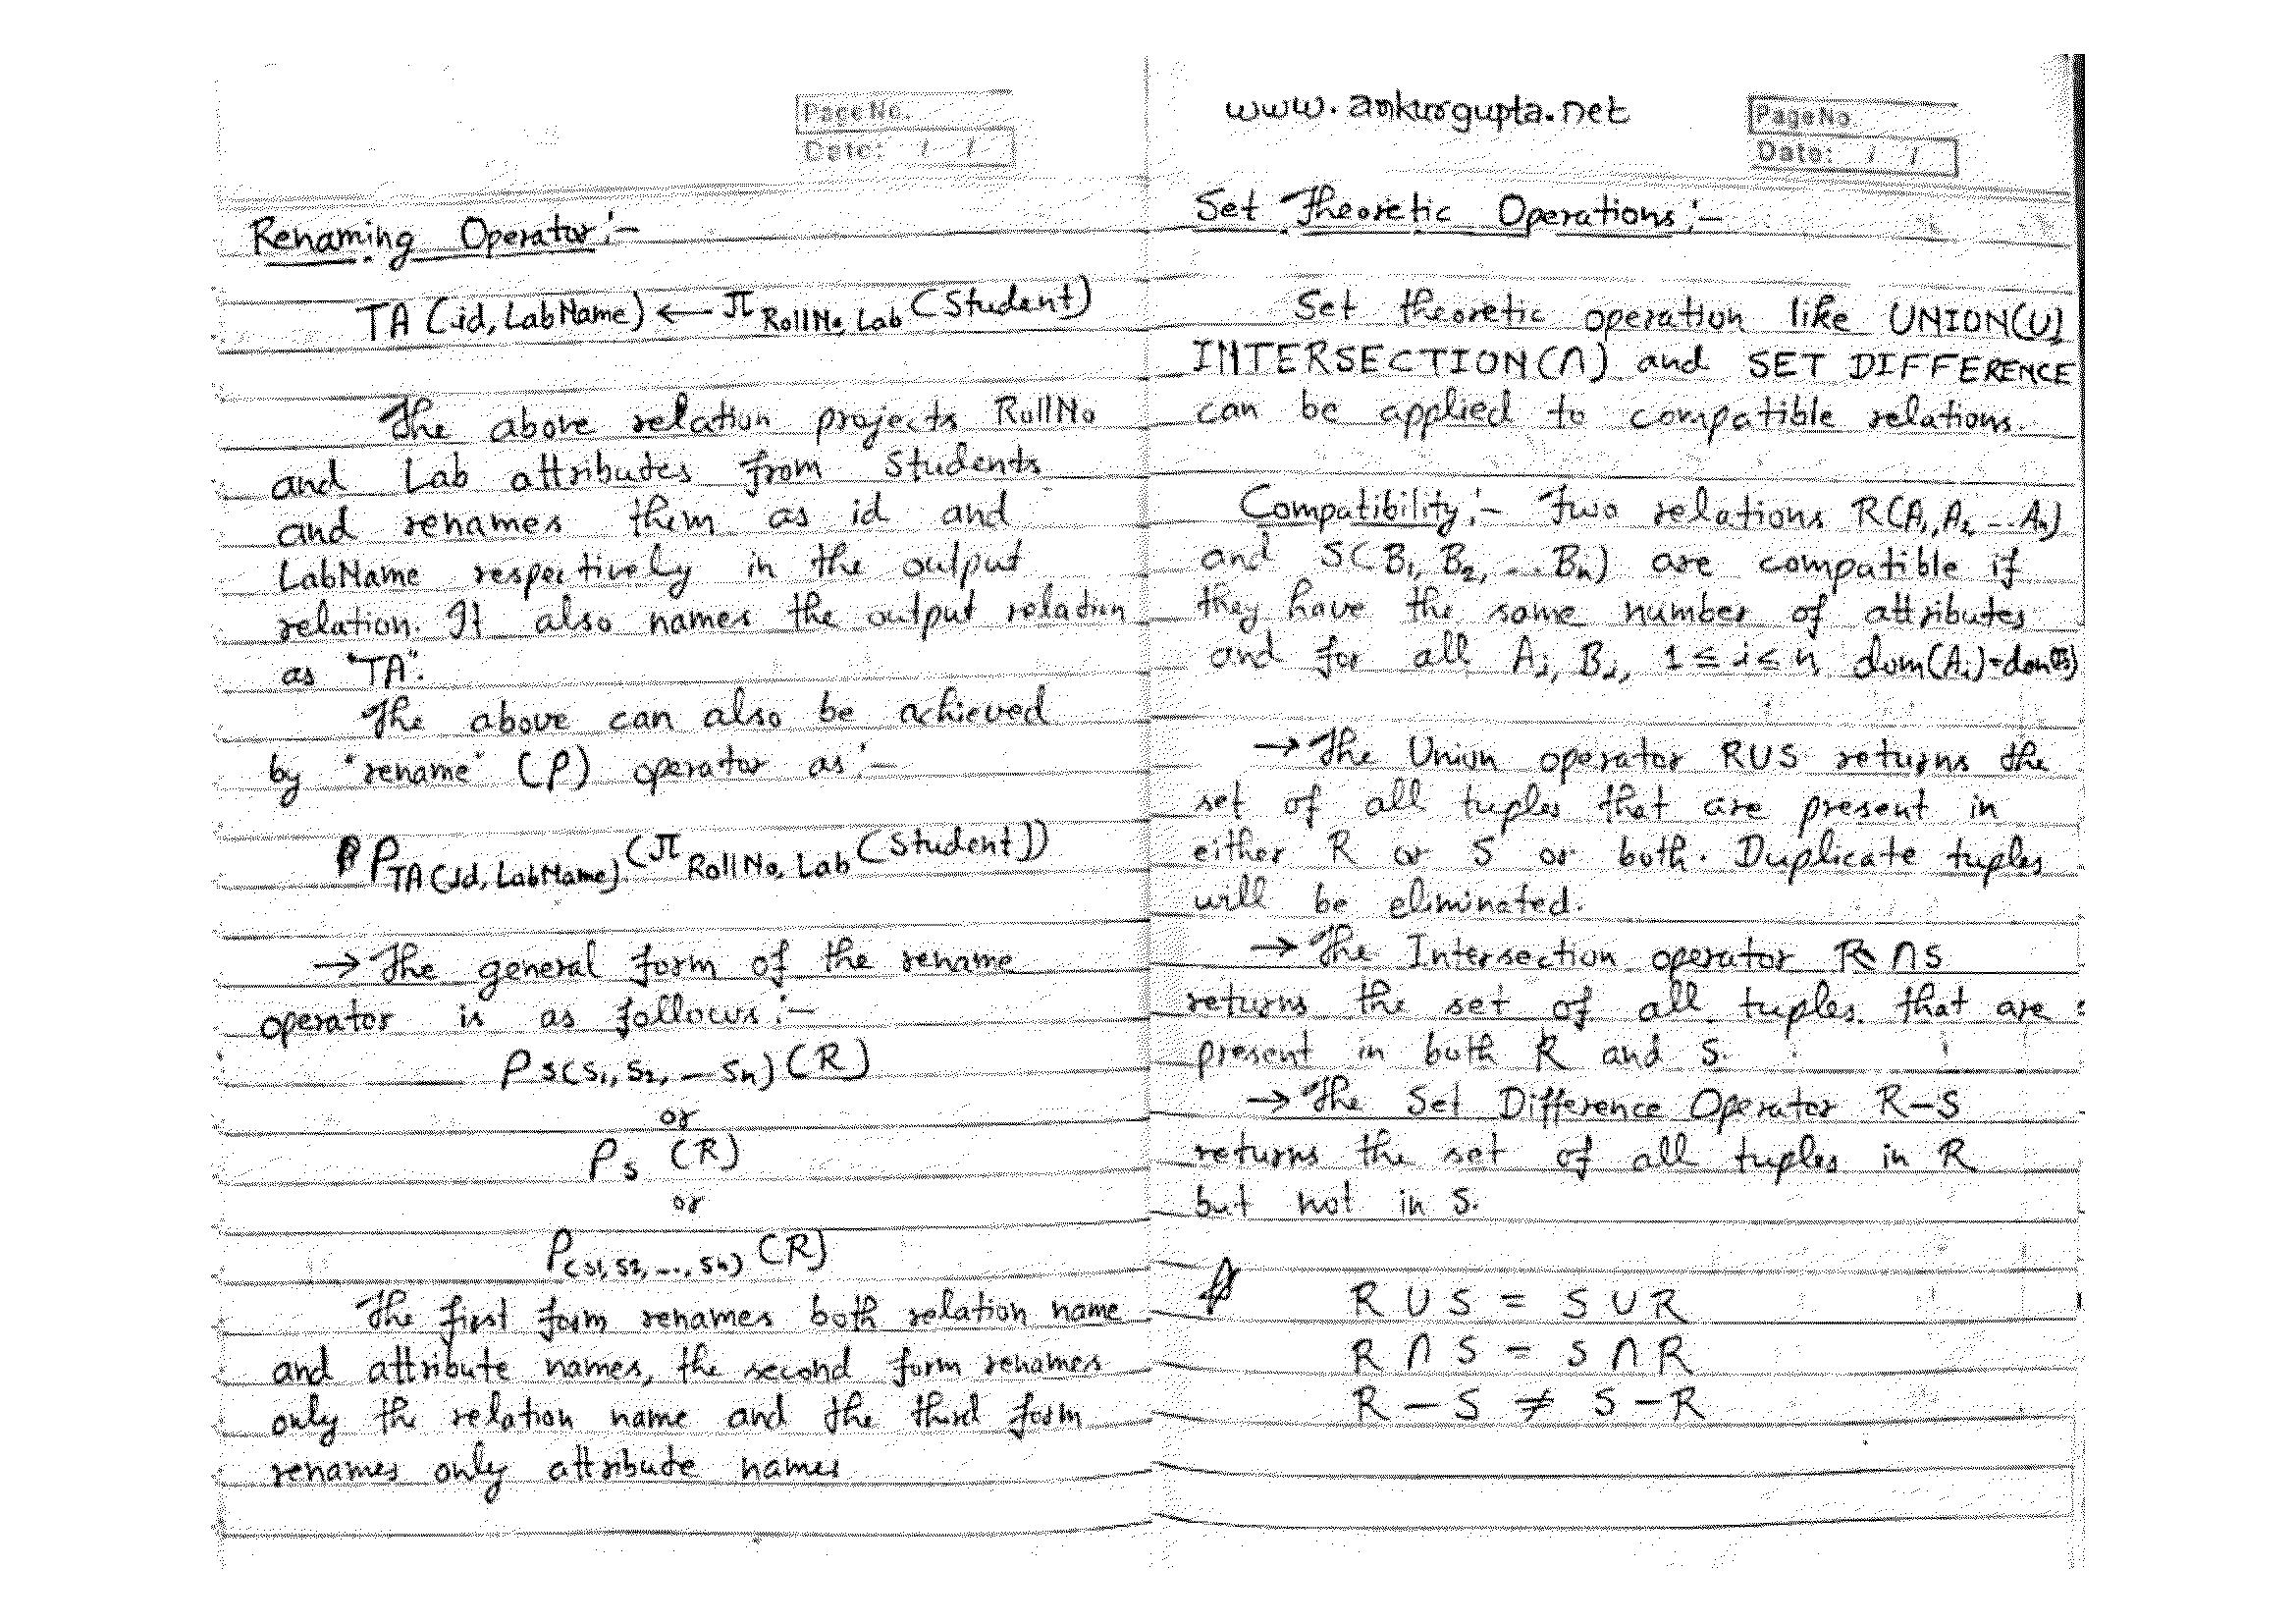 Page No.
Date: / /
Renaming Operator:-
TA (id, LabName) ← π RollNo, Lab (Student)
The above relation projects RollNo
and Lab attributes from Students
and renames them as id and
LabName respectively in the output
relation. It also names the output relation
as "TA".
The above can also be achieved
by "rename" (ρ) operator as:-
ρ TA(id, LabName) (π RollNo, Lab (Student))
→ The general form of the rename
operator is as follows:-
ρ S(S1, S2, — Sn) (R)
or
ρ S (R)
or
ρ (S1, S2, ..., Sn) (R)
The first form renames both relation name
and attribute names, the second form renames
only the relation name and the third form
renames only attribute names
www.ankurgupta.net
Page No.
Date: / /
Set Theoretic Operations:-
Set theoretic operation like UNION(∪)
INTERSECTION(∩) and SET DIFFERENCE
can be applied to compatible relations.
Compatibility:- Two relations R(A1, A2 ... An)
and S(B1, B2, ... Bn) are compatible if
they have the same number of attributes
and for all Ai, Bi, 1 ≤ i ≤ n dom(Ai)=dom(Bi)
→ The Union operator R∪S returns the
set of all tuples that are present in
either R or S or both. Duplicate tuples
will be eliminated.
→ The Intersection operator R ∩ S
returns the set of all tuples that are
present in both R and S.
→ The Set Difference Operator R-S
returns the set of all tuples in R
but not in S.
R ∪ S = S ∪ R
R ∩ S = S ∩ R
R - S ≠ S - R